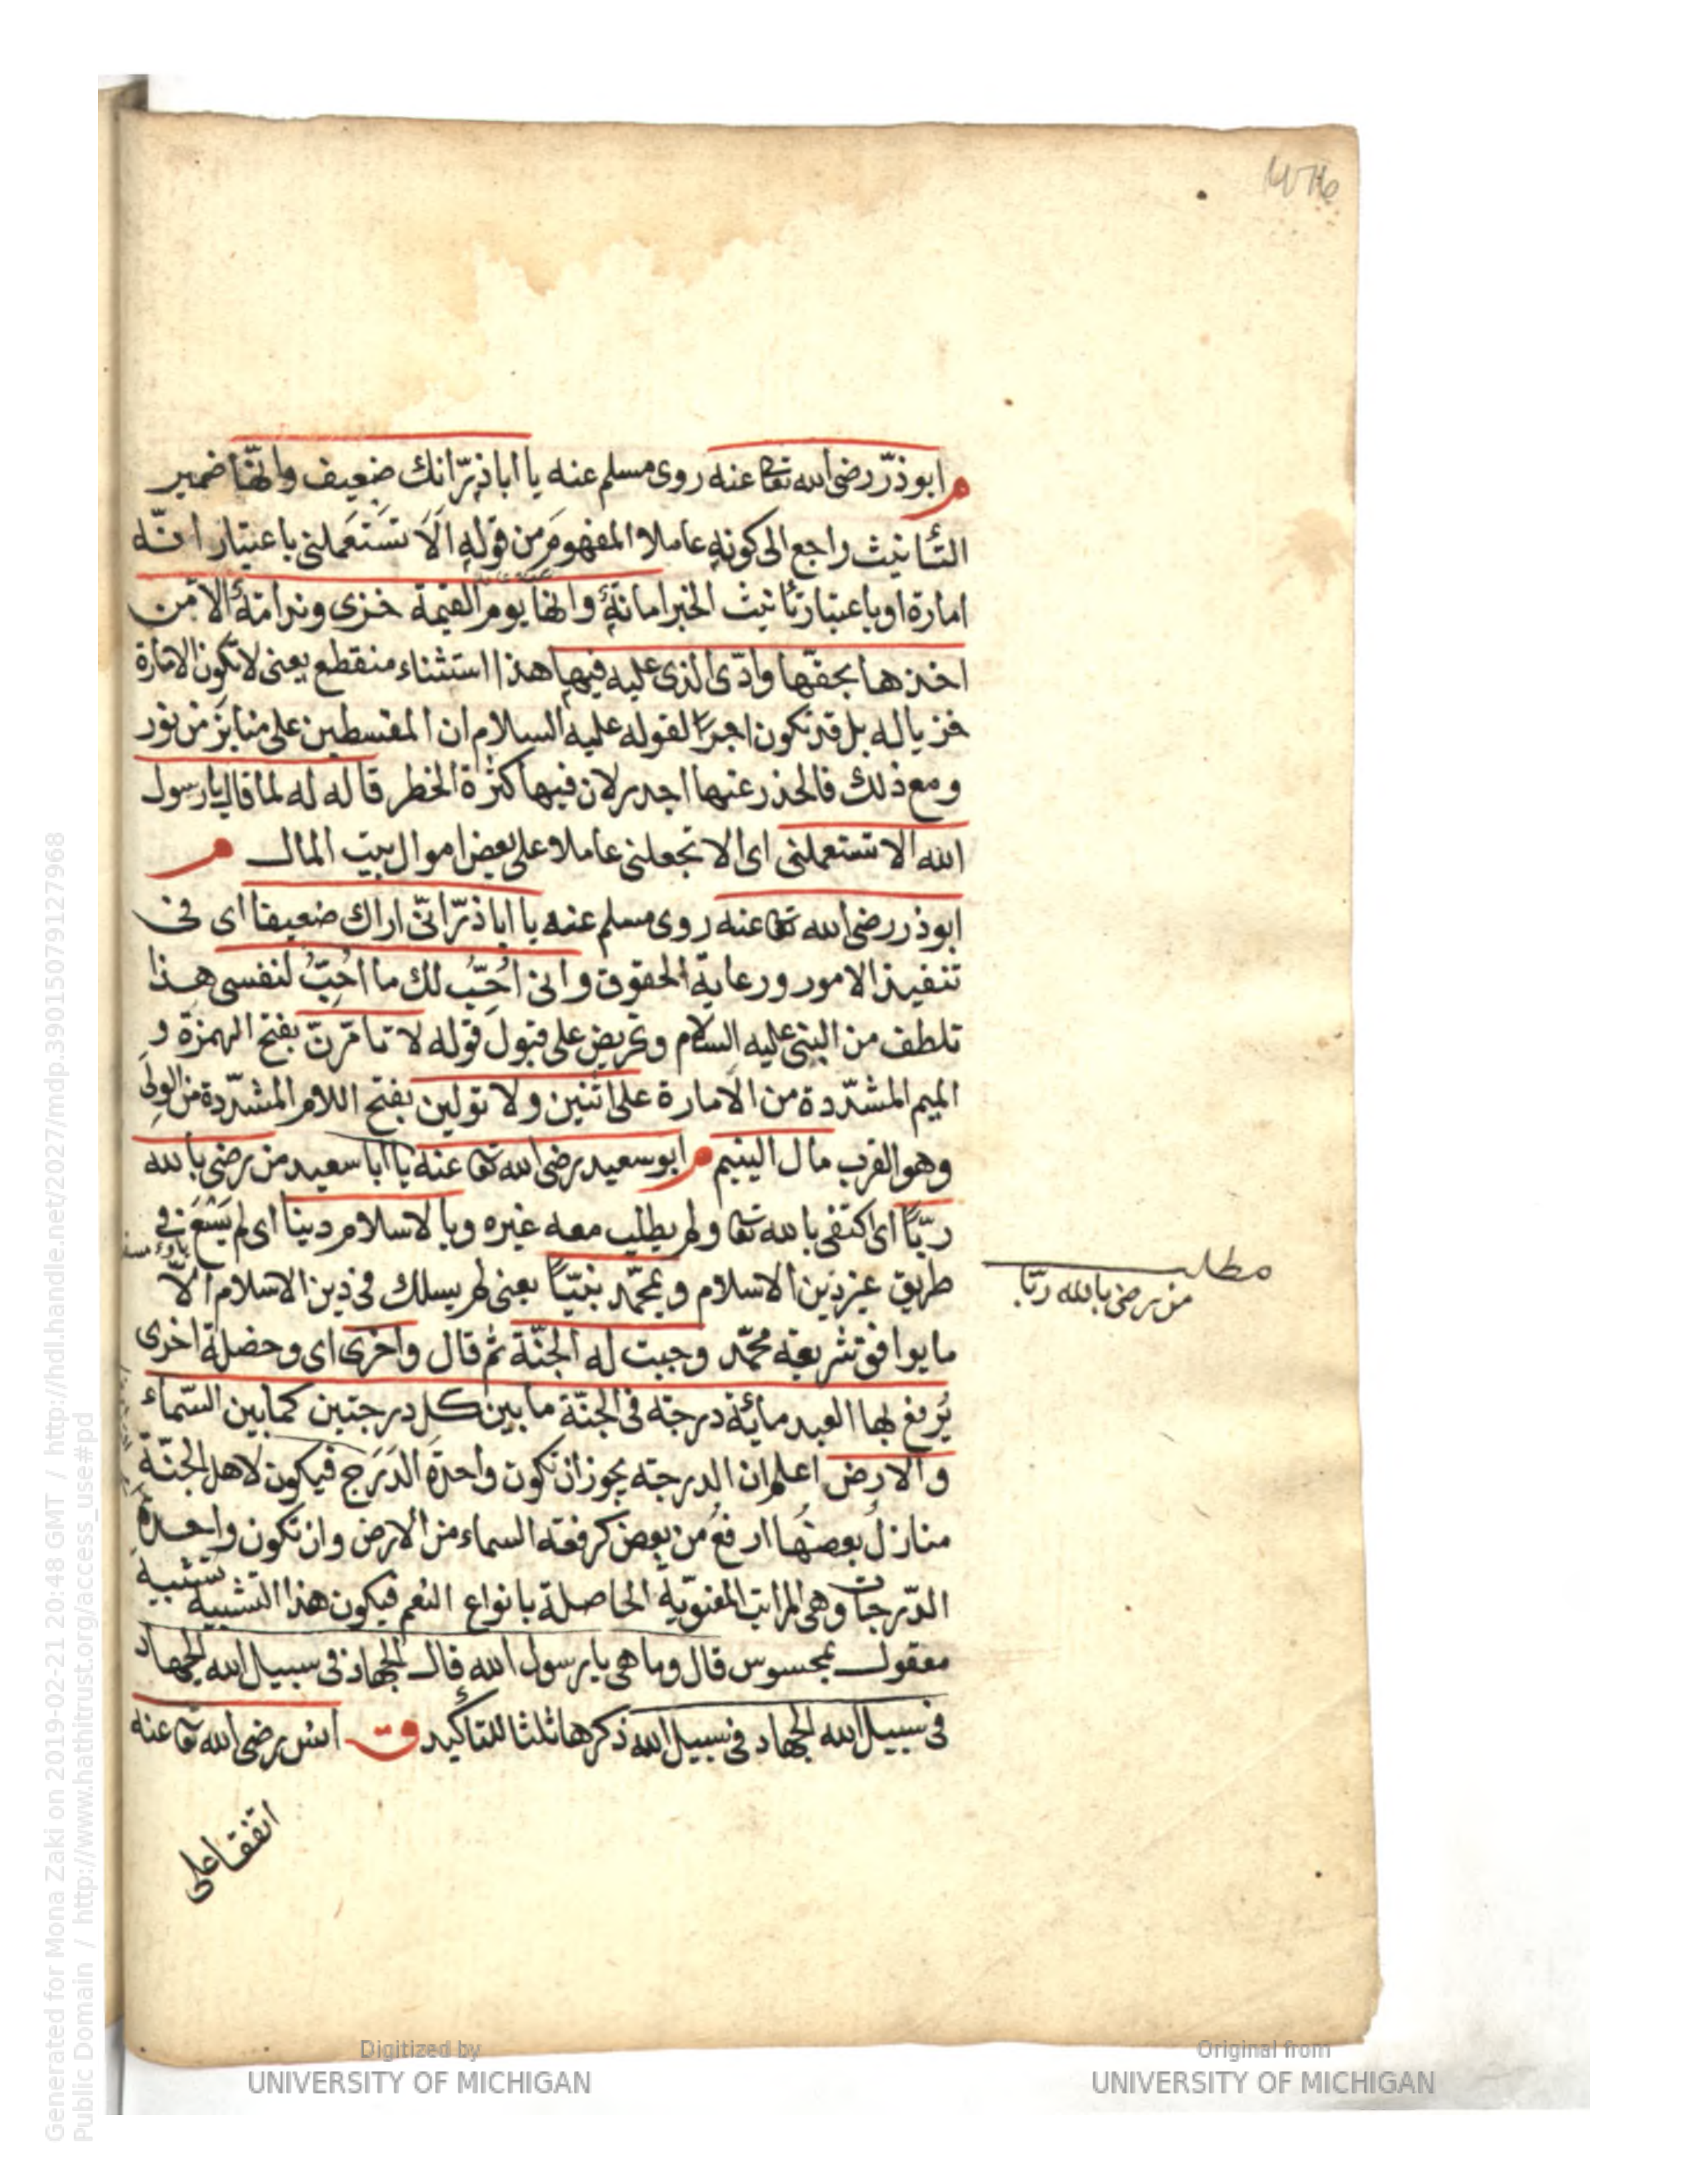 م ابوذرّ رضى الله تعا عنه روى مسلم عنه يا اباذرّ انك ضعيف وانّها ضمير
التّأنيث راجع الى كونه عاملا المفهوم من قوله اَلَا تَسْتَعملنى باعتبار انّه
امارة او باعتبار تأنيث الخبر امانة وانها يوم القيمة خزى وندامة الّا من
اخذها بحقّها وادّى الذى عليه فيها هذا استثناء منقطع يعنى لا تكون الامارة
خزيا له بل قد تكون اجرًا لقوله عليه السلام ان المقسطين على منابر من نور
ومع ذلك فالحذر عنها اجدر لان فيها كثرة الخطر قاله له لما قال يا رسول
الله الا تستعملنى اى الا تجعلنى عاملا على بعض اموال بيت المال م
ابوذر رضى الله تعا عنه روى مسلم عنه يا اباذرّ انّى اراك ضعيفا اى فى
تنفيذ الامور ورعاية الحقوق وانى اُحِبّ لك ما اُحِبّ لنفسى هذا
تلطف من النبى عليه السلام وتحريض على قبول قوله لا تأمّرنّ بفتح الهمزة و
الميم المشدّدة من الامارة على اثنين ولا تولين بفتح اللام المشدّدة من الولى
وهو القرب مال اليتيم م ابوسعيد رضى الله تعا عنه يا ابا سعيد من رضى بالله
ربًّا اى اكتفى بالله تعا ولم يطلب معه غيره وبالاسلام دينا اى لم يَسْعَ فى
طريق غير دين الاسلام وبمحمّد نبيًّا يعنى لم يسلك فى دين الاسلام الّا
ما يوافق شريعة محمّد وجبت له الجنّة ثم قال واخرى اى وخصلة اخرى
يُرفع بها العبد مائة درجة فى الجنّة ما بين كل درجتين كما بين السّماء
والارض اعلم ان الدرجة يجوز ان تكون واحدة الدَرَج فيكون لاهل الجنّة
منازلُ بعضُها ارفعُ من بعض كرفعة السماء من الارض وان تكون واحدة
الدّرجات وهى المراتب المعنويّة الحاصلة بانواع النعم فيكون هذا التشبيه تشبيه
معقول بمحسوس قال وما هى يا رسول الله قال الجهاد فى سبيل الله الجهاد
فى سبيل الله الجهاد فى سبيل الله ذكرها ثلثا للتأكيد ق انس رضى الله تعا عنه
اتفقا على
مطلب
من رضى بالله ربّا
Digitized by
UNIVERSITY OF MICHIGAN
Original from
UNIVERSITY OF MICHIGAN
Generated for Mona Zaki on 2019-02-21 20:48 GMT / http://hdl.handle.net/2027/mdp.39015079127968
Public Domain / http://www.hathitrust.org/access_use#pd